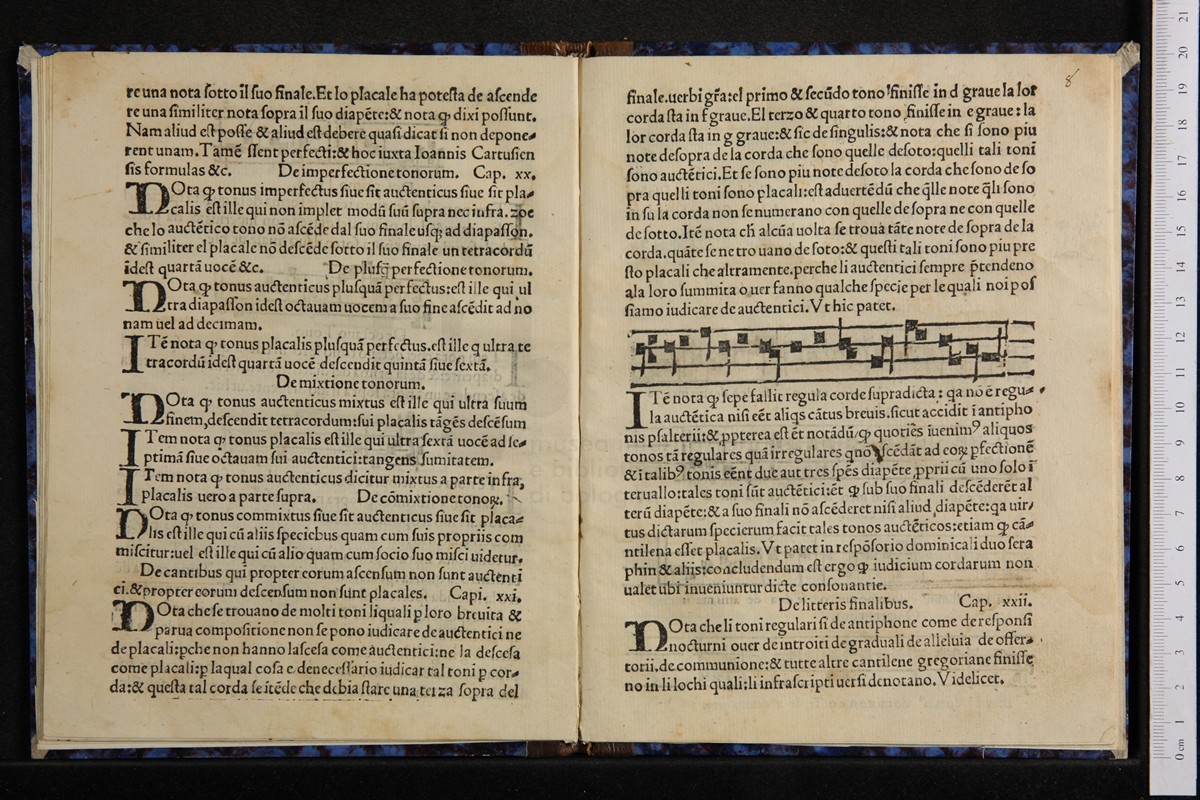 re una nota sotto il suo finale.Et lo placale ha potesta de ascende
re una similiter nota sopra il suo diapēte:& nota ꝙ dixi possunt.
Nam aliud est posse & aliud est debere quasi dicat si non depone-
rent unam. Tamē ssent perfecti:& hoc iuxta Ioannis Cartusien
sis formulas &c. De imperfectione tonorum. Cap. xx.
NOta ꝙ tonus imperfectus siue sit auctenticus siue sit pla-
calis est ille qui non implet modū suū supra nec infra. zoe
che lo auctētico tono nō ascēde dal suo finale usq; ad diapasson.
& similiter el placale nō descēde sotto il suo finale un tetracordū
idest quartā uocē &c. De plusq̄ perfectione tonorum.
NOta ꝙ tonus auctenticus plusquā perfectus:est ille qui ul
tra diapasson idest octauam uocem a suo fine ascēdit ad no
nam uel ad decimam.
ITē nota ꝙ tonus placalis plusquā perfectus.est ille q ultra te
tracordū idest quartā uocē descendit quintā siue sextā.
De mixtione tonorum.
NOta ꝙ tonus auctenticus mixtus est ille qui ultra suum
finem,descendit tetracordum:sui placalis tāgēs descēsum
ITem nota ꝙ tonus placalis est ille qui ultra sextā uocē ad se-
ptimā siue octauam sui auctentici:tangens sumitatem.
ITem nota ꝙ tonus auctenticus dicitur mixtus a parte infra,
placalis uero a parte supra. De cōmixtione tonoꝝ.
NOta ꝙ tonus commixtus siue sit auctenticus siue sit placa-
lis est ille qui cū aliis speciebus quam cum suis propriis com
miscitur:uel est ille qui cū alio quam cum socio suo misci uidetur.
De cantibus qui propter eorum ascensum non sunt auctenti
ci.& propter eorum descensum non sunt placales. Capi. xxi.
NOta che se trouano de molti toni liquali ꝑ loro breuita &
parua compositione non se pono iudicare de auctentici ne
de placali:ꝑche non hanno lascesa come auctentici:ne la descesa
come placali:ꝑ laqual cosa e denecessario iudicar tal toni ꝑ cor-
da:& questa tal corda se itēde che debia stare una terza sopra del
8
finale.uerbi gr̄a:el primo & secūdo tono finisse in d graue la lor
corda sta in f graue.El terzo & quarto tono finisse in e graue: la
lor corda sta in g graue:& sic de singulis:& nota che si sono piu
note desopra de la corda che sono quelle desoto:quelli tali toni
sono auctētici.Et se sono piu note desoto la corda che sono de so
pra quelli toni sono placali:est aduertēdū che q̄lle note q̄li sono
in su la corda non se numerano con quelle de sopra ne con quelle
de sotto.Itē nota ch̄ alcūa uolta se troua tāte note de sopra de la
corda.quāte se ne tro uano de soto:& questi tali toni sono piu pre
sto placali che altramente.perche li auctentici sempre p̄tendeno
ala loro summita ouer fanno qualche specie per le quali noi pos
siamo iudicare de auctentici.Vt hic patet.
ITē nota ꝙ sepe fallit regula corde supradicta: qa nō ē regu-
la auctētica nisi eēt aliqs cātus breuis.sicut accidit ī antipho
nis psalterii:&,ppterea est ēt notādū,ꝙ quotiēs iuenimꝰ aliquos
tonos tā regulares quā irregulares qnō scēdāt ad eoꝝ pfectionē
& ī talibꝰ tonis eēnt due aut tres spēs diapēte,pprii cū uno solo ī
teruallo:tales toni sūt auctētici:ēt ꝙ sub suo finali descēderēt al
terū diapēte:& a suo finali nō ascēderet nisi aliud diapēte:qa uir-
tus dictarum specierum facit tales tonos auctēticos:etiam ꝙ cā-
ntilena esset placalis. Vt patet in respōsorio dominicali duo sera
phin & aliis:concludendum est ergo ꝙ iudicium cordarum non
ualet ubi inueniuntur dicte consonantie.
De litteris finalibus. Cap. xxii.
NOta che li toni regulari si de antiphone come de responsi
nocturni ouer de introiti de graduali de alleluia de offer-
torii.de communione:& tutte altre cantilene gregoriane finisse
no in li lochi quali:li infrascripti uersi denotano. Videlicet.
0 cm 1 2 3 4 5 6 7 8 9 10 11 12 13 14 15 16 17 18 19 20 21